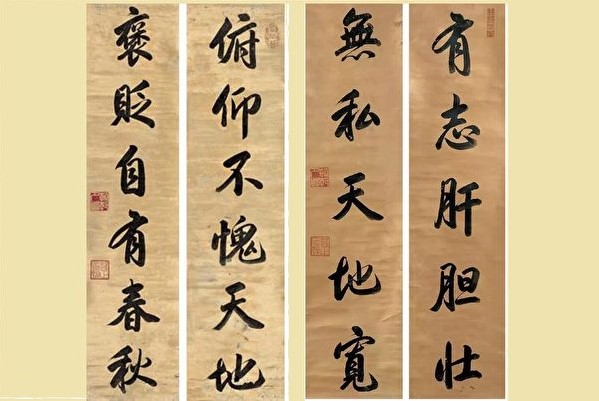 有志肝胆壯
無私天地寬
俯仰不愧天地
褒貶自有春秋